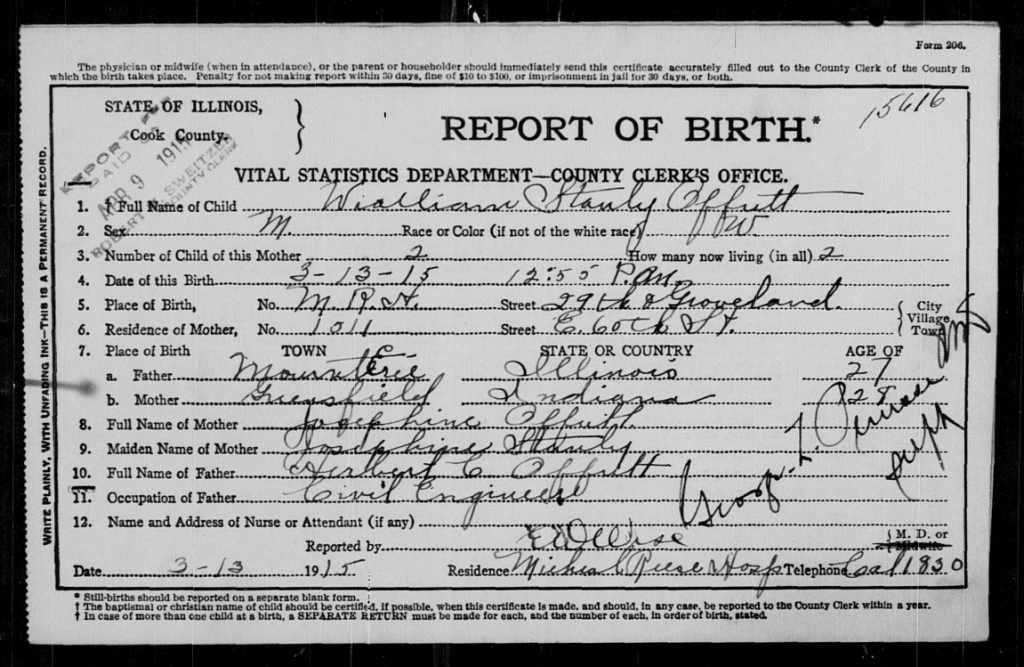 Form 206.
The physician or midwife (when in attendance), or the parent or householder should immediately send this certificate accurately filled out to the County Clerk of the County in
which the birth takes place. Penalty for not making report within 30 days, fine of $10 to $100, or imprisonment in jail for 30 days, or both.
WRITE PLAINLY, WITH UNFADING INK—THIS IS A PERMANENT RECORD.
STATE OF ILLINOIS,
Cook County.
REPORT
PAID
APR 9 1915
ROBERT SWEITZER
COUNTY CLERK
15616
REPORT OF BIRTH.*
VITAL STATISTICS DEPARTMENT—COUNTY CLERK'S OFFICE.
1. † Full Name of Child Wialliam Stanly Offutt
2. Sex M. Race or Color (if not of the white race) W
3. Number of Child of this Mother 2 How many now living (in all) 2
4. Date of this Birth 3-13-15 12:55 P.M.
5. Place of Birth, No. M.R.H. Street 29th & Groveland. City
Village
Town
6. Residence of Mother, No. 1011 Street E. 60th St.
7. Place of Birth TOWN STATE OR COUNTRY AGE OF
a. Father Mount Erie Illinois 27
b. Mother Greensfield Indiana 28
8. Full Name of Mother Josephine Offutt
9. Maiden Name of Mother Josephine Stanly
10. Full Name of Father Herbert C Offutt
11. Occupation of Father Civil Engineer
12. Name and Address of Nurse or Attendant (if any)
Reported by M. D. or
Midwife
George L.
Supt
Date 3-13 1915 Residence Micheal Reese Hosp Telephone Cal 1830
* Still-births should be reported on a separate blank form.
† The baptismal or christian name of child should be certified, if possible, when this certificate is made, and should, in any case, be reported to the County Clerk within a year.
† In case of more than one child at a birth, a SEPARATE RETURN must be made for each, and the number of each, in order of birth, stated.